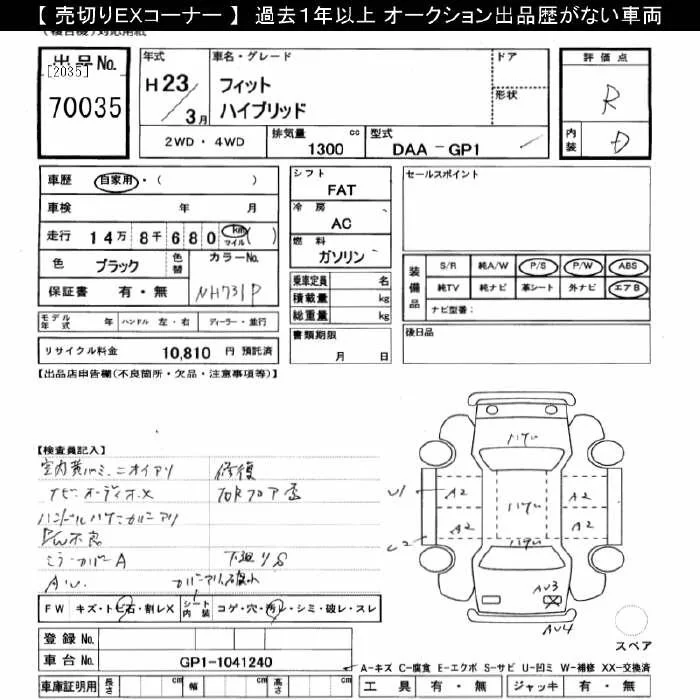 【 売切りEXコーナー 】 過去1年以上 オークション出品歴がない車両
出品No.
[2035]
70035
年式
H23/3月
車名・グレード
フィット
ハイブリッド
ドア
形状
評価点
R
内装
D
2WD・4WD
排気量 cc
1300
型式
DAA-GP1
車歴 自家用・( )
車検 年 月
走行 14万8千680 km マイル ( )
色 ブラック 色替 カラーNo.
NH731P
保証書 有・無
モデル年式 年 ハンドル 左・右 ディーラー・並行
リサイクル料金 10,810 円 預託済
シフト
FAT
冷房
AC
燃料
ガソリン
乗車定員 名
積載量 kg
総重量 kg
書類期限
月 日
セールスポイント
装備品
S/R 純A/W P/S P/W ABS
純TV 純ナビ 革シート 外ナビ エアB
ナビ型番:
後日品
【出品店申告欄(不良箇所・欠品・注意事項等)】
【検査員記入】
修復
ナビオーディオX
ミラーカバーA
下廻りS
FW キズ・トビ石・割レX シート内装 コゲ・穴・汚レ・シミ・破レ・スレ
登録No.
車台No. GP1-1041240
車庫証明用 長さ cm 幅 cm 高さ cm
U1
A2
A2
A2
A2
AU3
AU4
スペア
A-キズ C-腐食 E-エクボ S-サビ U-凹ミ W-補修 XX-交換済
工具 有・無 ジャッキ 有・無